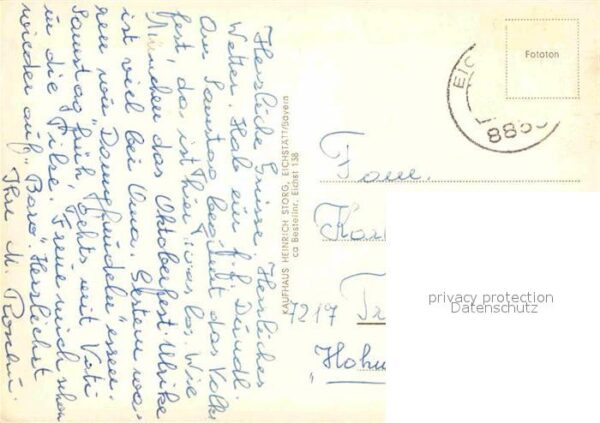 Herzliche Grüsse. Herrliches
Wetter. Hab ein f. f. Dirndl.
Am Samstag beginnt das Volks
fest, da ist hier was los. Wie
München das Oktoberfest. Ulrike
ist viel bei Oma. Gestern wa-
ren wir "Dampfnudeln" essen.
Samstag früh, gehts mit Vati
in die Pilse. Freue mich schon
wieder auf "Baro" Herzlichst
Ihre M.
KAUFHAUS HEINRICH STORG, EICHSTÄTT/Bayern
ca Bestellnr. Eichst 138
Fototon
EIC
885
Fam.
7217
"Hohn
privacy protection
Datenschutz